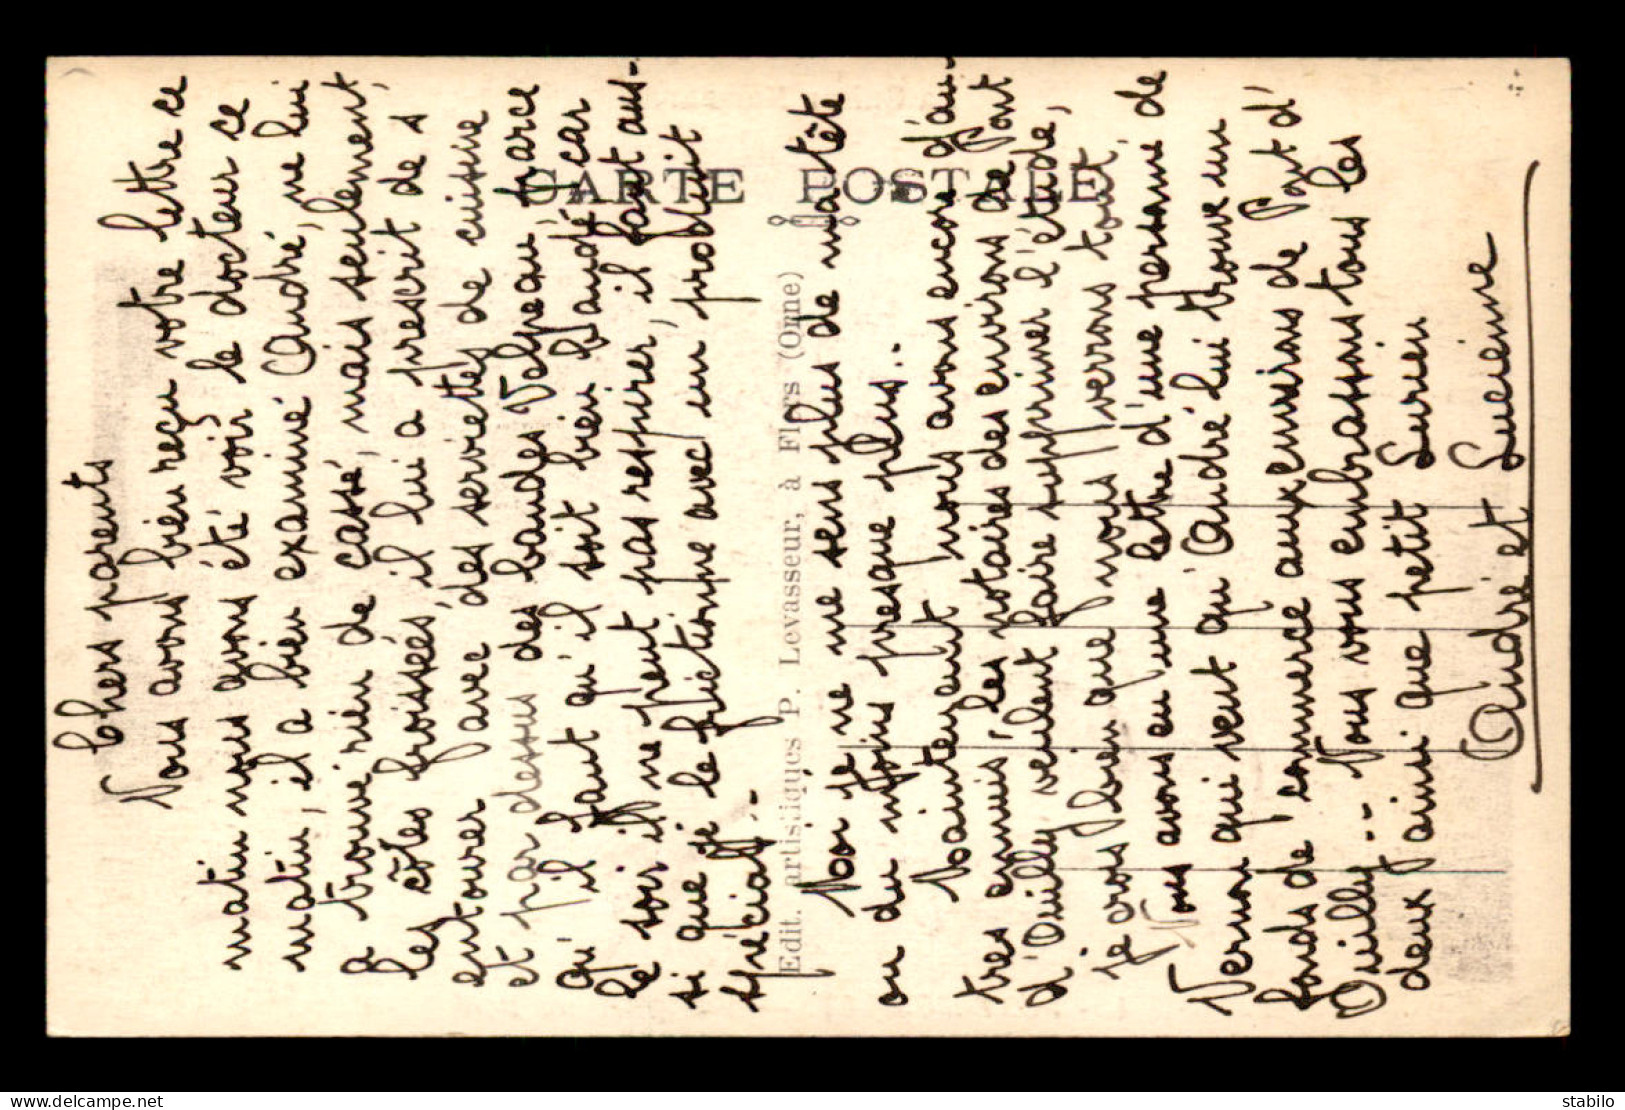 Chers parents
Nous avons bien reçu votre lettre ce
matin nous avons été voir le docteur ce
matin, il a bien examiné André, ne lui
a trouvé rien de cassé, mais seulement
les côtes froissées, il lui a prescrit de s
entourer avec des serviettes de cuisine
et par dessus des bandes Velpeau, parce
qu'il faut qu'il soit bien bandé car
le soir il ne peut pas respirer, il faut aus-
si que je le frictionne avec un produit
spécial.-
Moi je ne me sens plus de ma tête
ou du moins presque plus..
Maintenant nous avons encore d'au-
tres ennuis, les notaires des environs de Pont
d'Ouilly veulent faire supprimer l'étude,
je crois bien que nous verrons tout,
Nous avons eu une lettre d'une personne de
Vernon qui veut qu'André lui trouve un
fonds de commerce aux environs de Pont d'
Ouilly.- Nous vous embrassons tous les
deux ainsi que petit
André et Lucienne
CARTE POSTALE
Edit. artistiques P. Levasseur, à Flers (Orne)
stabilo